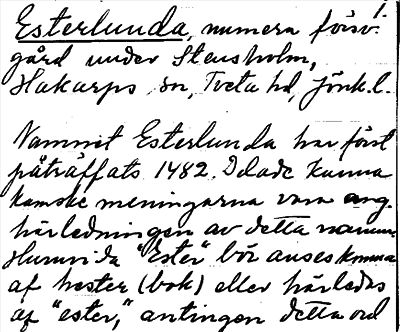 1.
Esterlunda, numera försv.
gård under Stensholm,
Hakarps sn, Tveta hd, Jönk. l.
Namnet Esterlunda har först
påträffats 1482. Delade kunna
kanske meningarna vara ang.
härledningen av detta namn.
Huruvida "Ester" bör anses komma
af hester (bok) eller härledas
af "ester," antingen detta ord